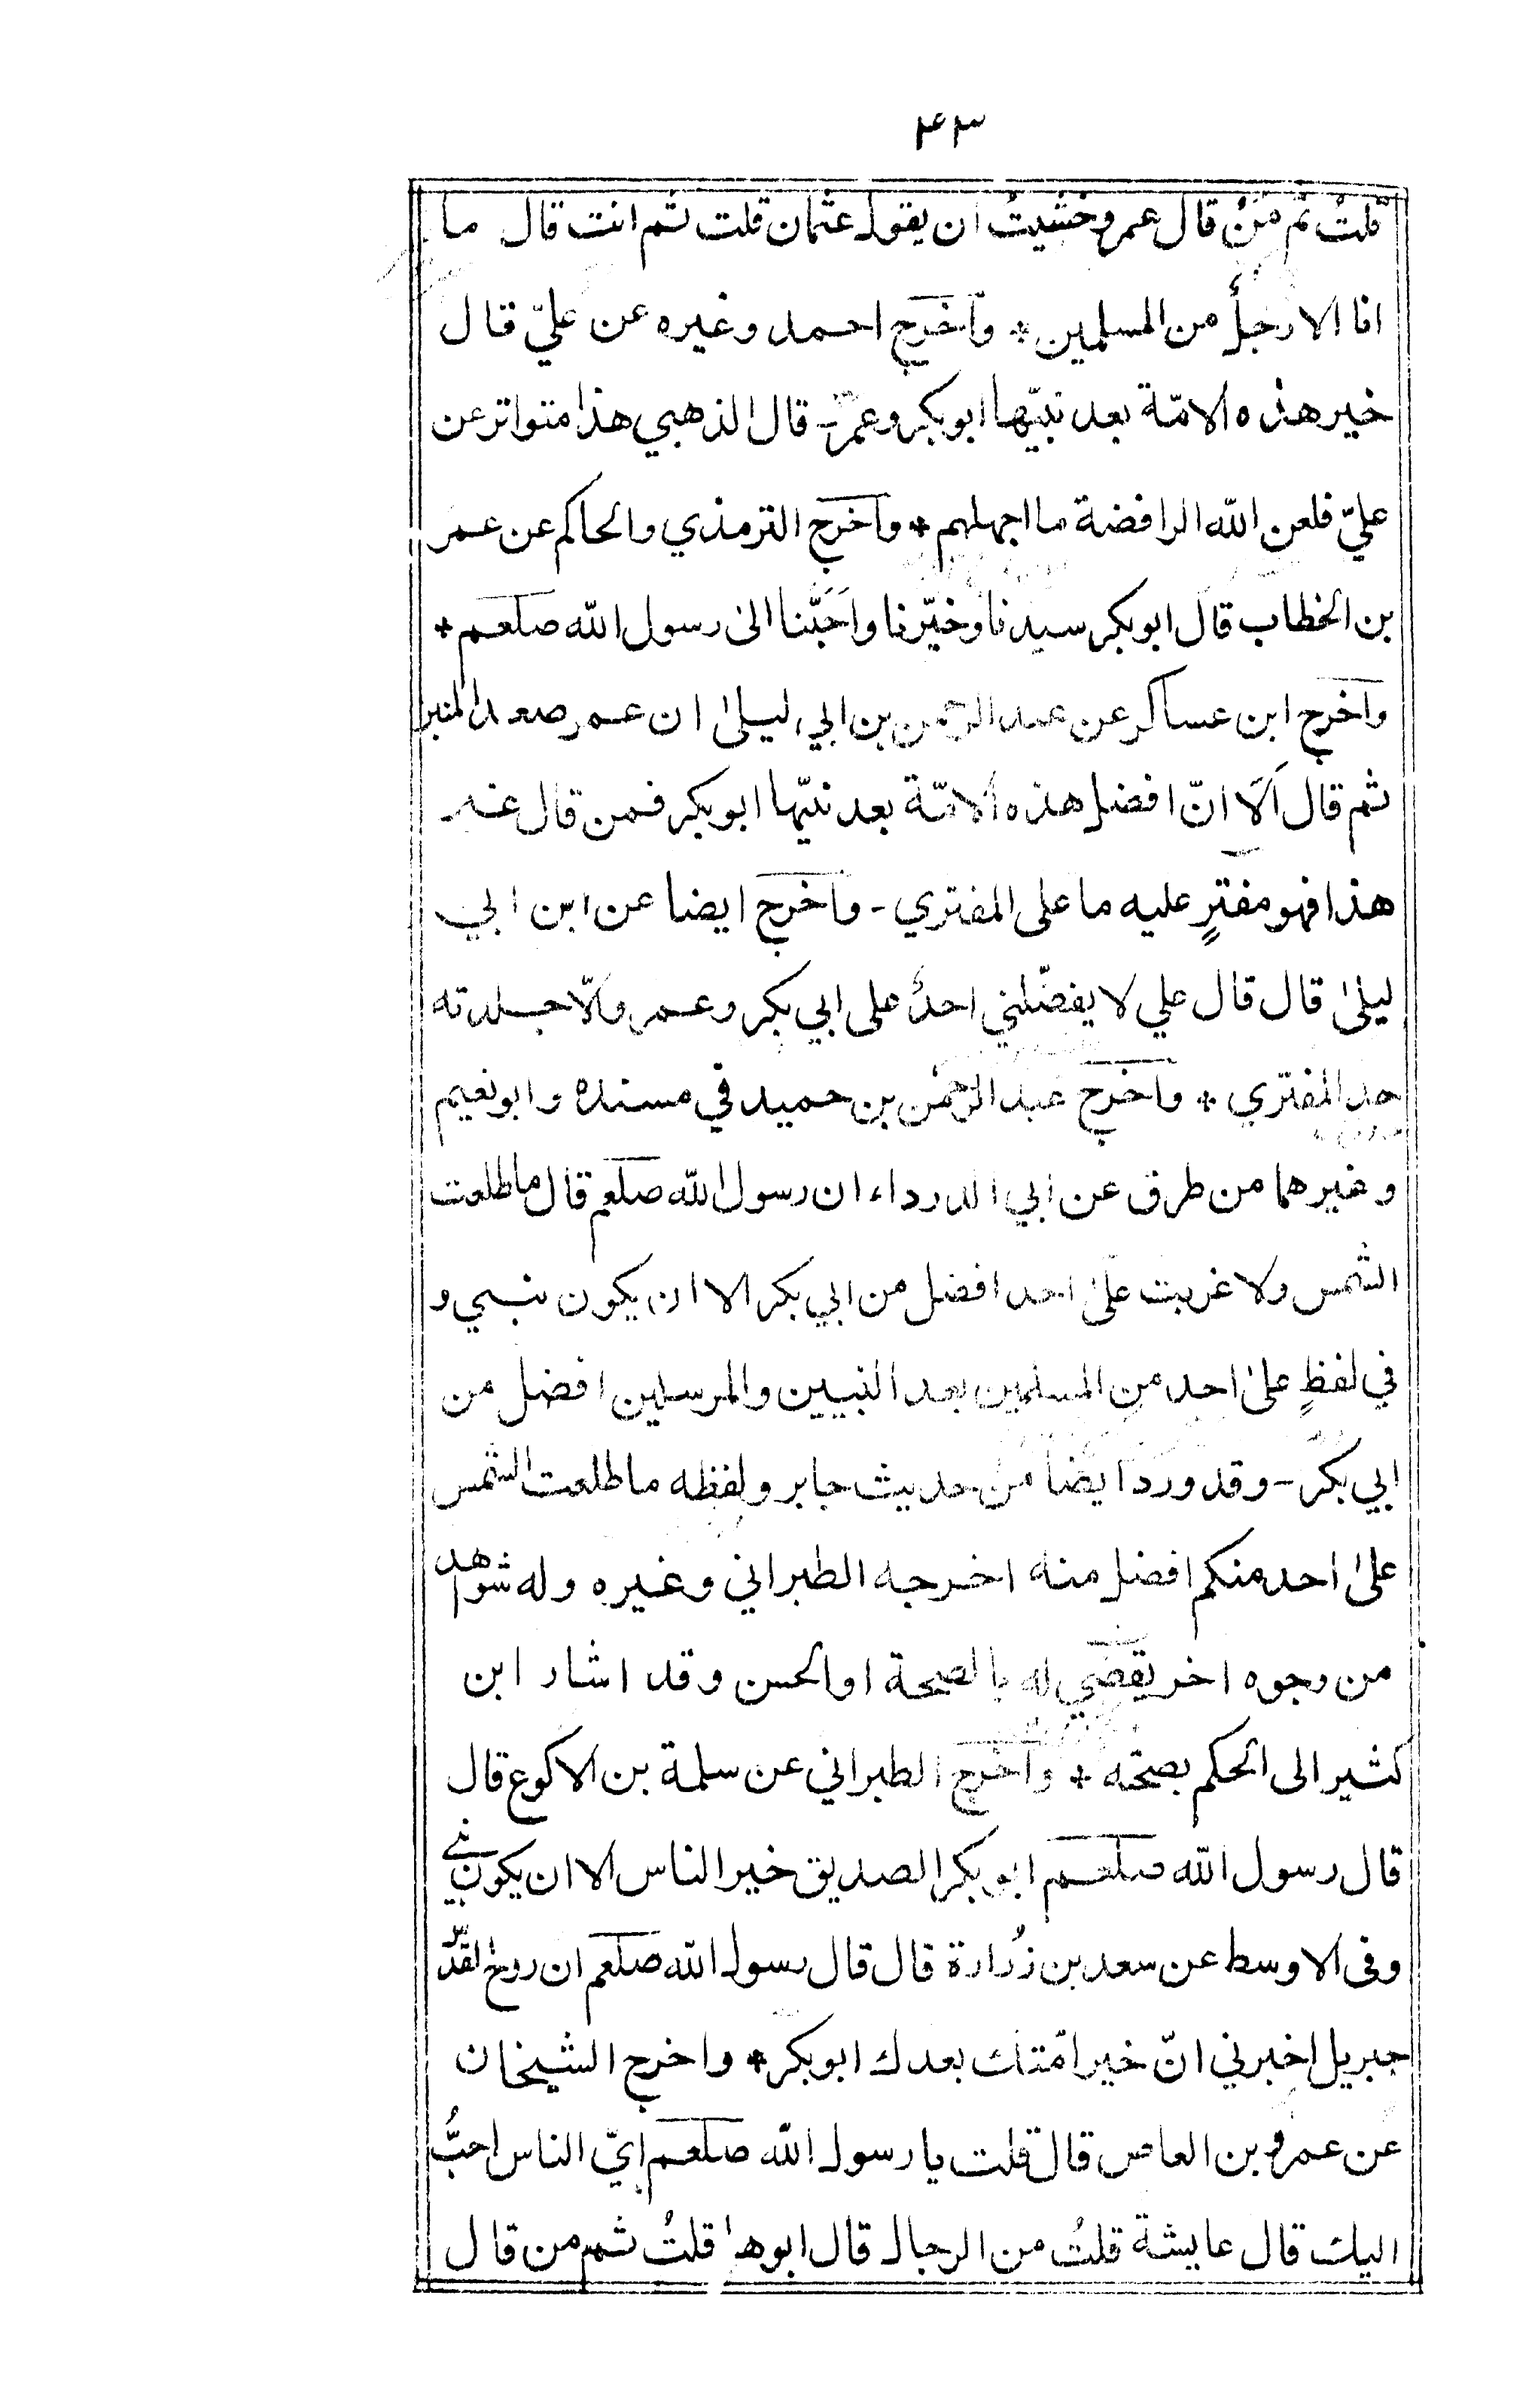 ۴۳
قلتُ ثم مَنْ قال عمر وخشيتُ ان يقول عثمان قلت ثم انت قال ما
انا الا رجلٌ من المسلمين * وآخرج احمد وغيره عن عليّ قال
خير هذه الامّة بعد نبيّها ابوبكر وعمر - قال الذهبي هذا متواتر عن
عليّ فلعن الله الرافضة ما اجهلهم * وآخرج الترمذي والحاكم عن عمر
بن الخطاب قال ابوبكر سيدنا وخيّرنا واَحَبّنا الىٰ رسول الله صلعم *
وآخرج ابن عساكر عن عبد الرحمن بن ابي ليلىٰ ان عمر صعد المنبر
ثم قال اَلَا انّ افضل هذه الامّة بعد نبيّها ابوبكر فمن قال غير
هذا فهو مفترٍ عليه ما على المفتري - وآخرج ايضا عن ابن ابي
ليلىٰ قال قال علي لا يفضّلني احدٌ على ابي بكر وعمر والّا جلدته
حد المفتري * وآخرج عبد الرحمٰن بن حميد في مسنده وابونعيم
وغيرهما من طرق عن ابي الدرداء ان رسول الله صلعم قال ما طلعت
الشمس ولا غربت علىٰ احد افضل من ابي بكر الا ان يكون نبي و
في لفظٍ علىٰ احد من المسلمين بعد النبيين والمرسلين افضل من
ابي بكر - وقد ورد ايضا من حديث جابر ولفظه ما طلعت الشمس
علىٰ احد منكم افضل منه اخرجه الطبراني وغيره وله شواهد
من وجوه اخر يقضي له بالصحة او الحسن وقد اشار ابن
كثير الى الحكم بصحّته * وآخرج الطبراني عن سلمة بن الاكوع قال
قال رسول الله صلعم ابوبكر الصديق خير الناس الا ان يكون نبي
وفى الاوسط عن سعد بن زُرارة قال قال رسول الله صلعم ان روح القدس
جبريل اخبرني انّ خير امّتك بعدك ابوبكر * واخرج الشيخان
عن عمرو بن العاص قال قلت يا رسول الله صلعم ايّ الناس احبُّ
اليك قال عايشة قلتُ من الرجال قال ابوها قلتُ ثم من قال